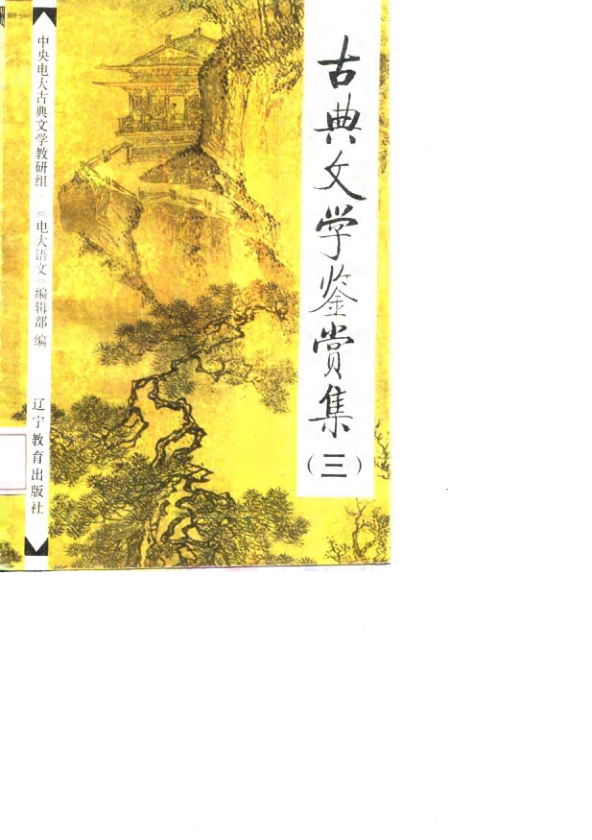 古典文学鉴赏集
（三）
中央电大古典文学教研组
《电大语文》编辑部 编
辽宁教育出版社